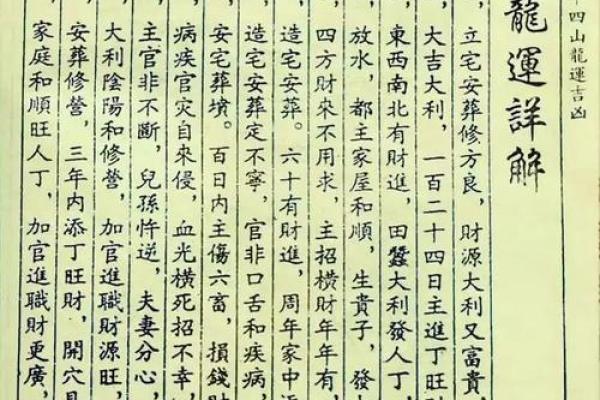 十四山龍運吉凶
龍運詳解
立宅安葬修方良，財源大利又富貴，
大吉大利，一百二十四日主進丁旺財
東西南北有財進，田蠶大利發人丁，
放水，都主家屋和順，生貴子，發
四方財來不用求，主招橫財年年有，
造宅安葬。六十有財進，周年家中
造宅安葬定不寧，官非口舌和疾病，
安宅葬墳。百日內主傷六畜，損錢財
病疾官灾自來侵，血光橫死招不幸，
主官非不斷，兒孫忤逆，夫妻分心，
大利陰陽和修營，加官進職財源旺，
安葬修營，三年內添丁旺財，開穴
家庭和順旺人丁，加官進職財更廣，